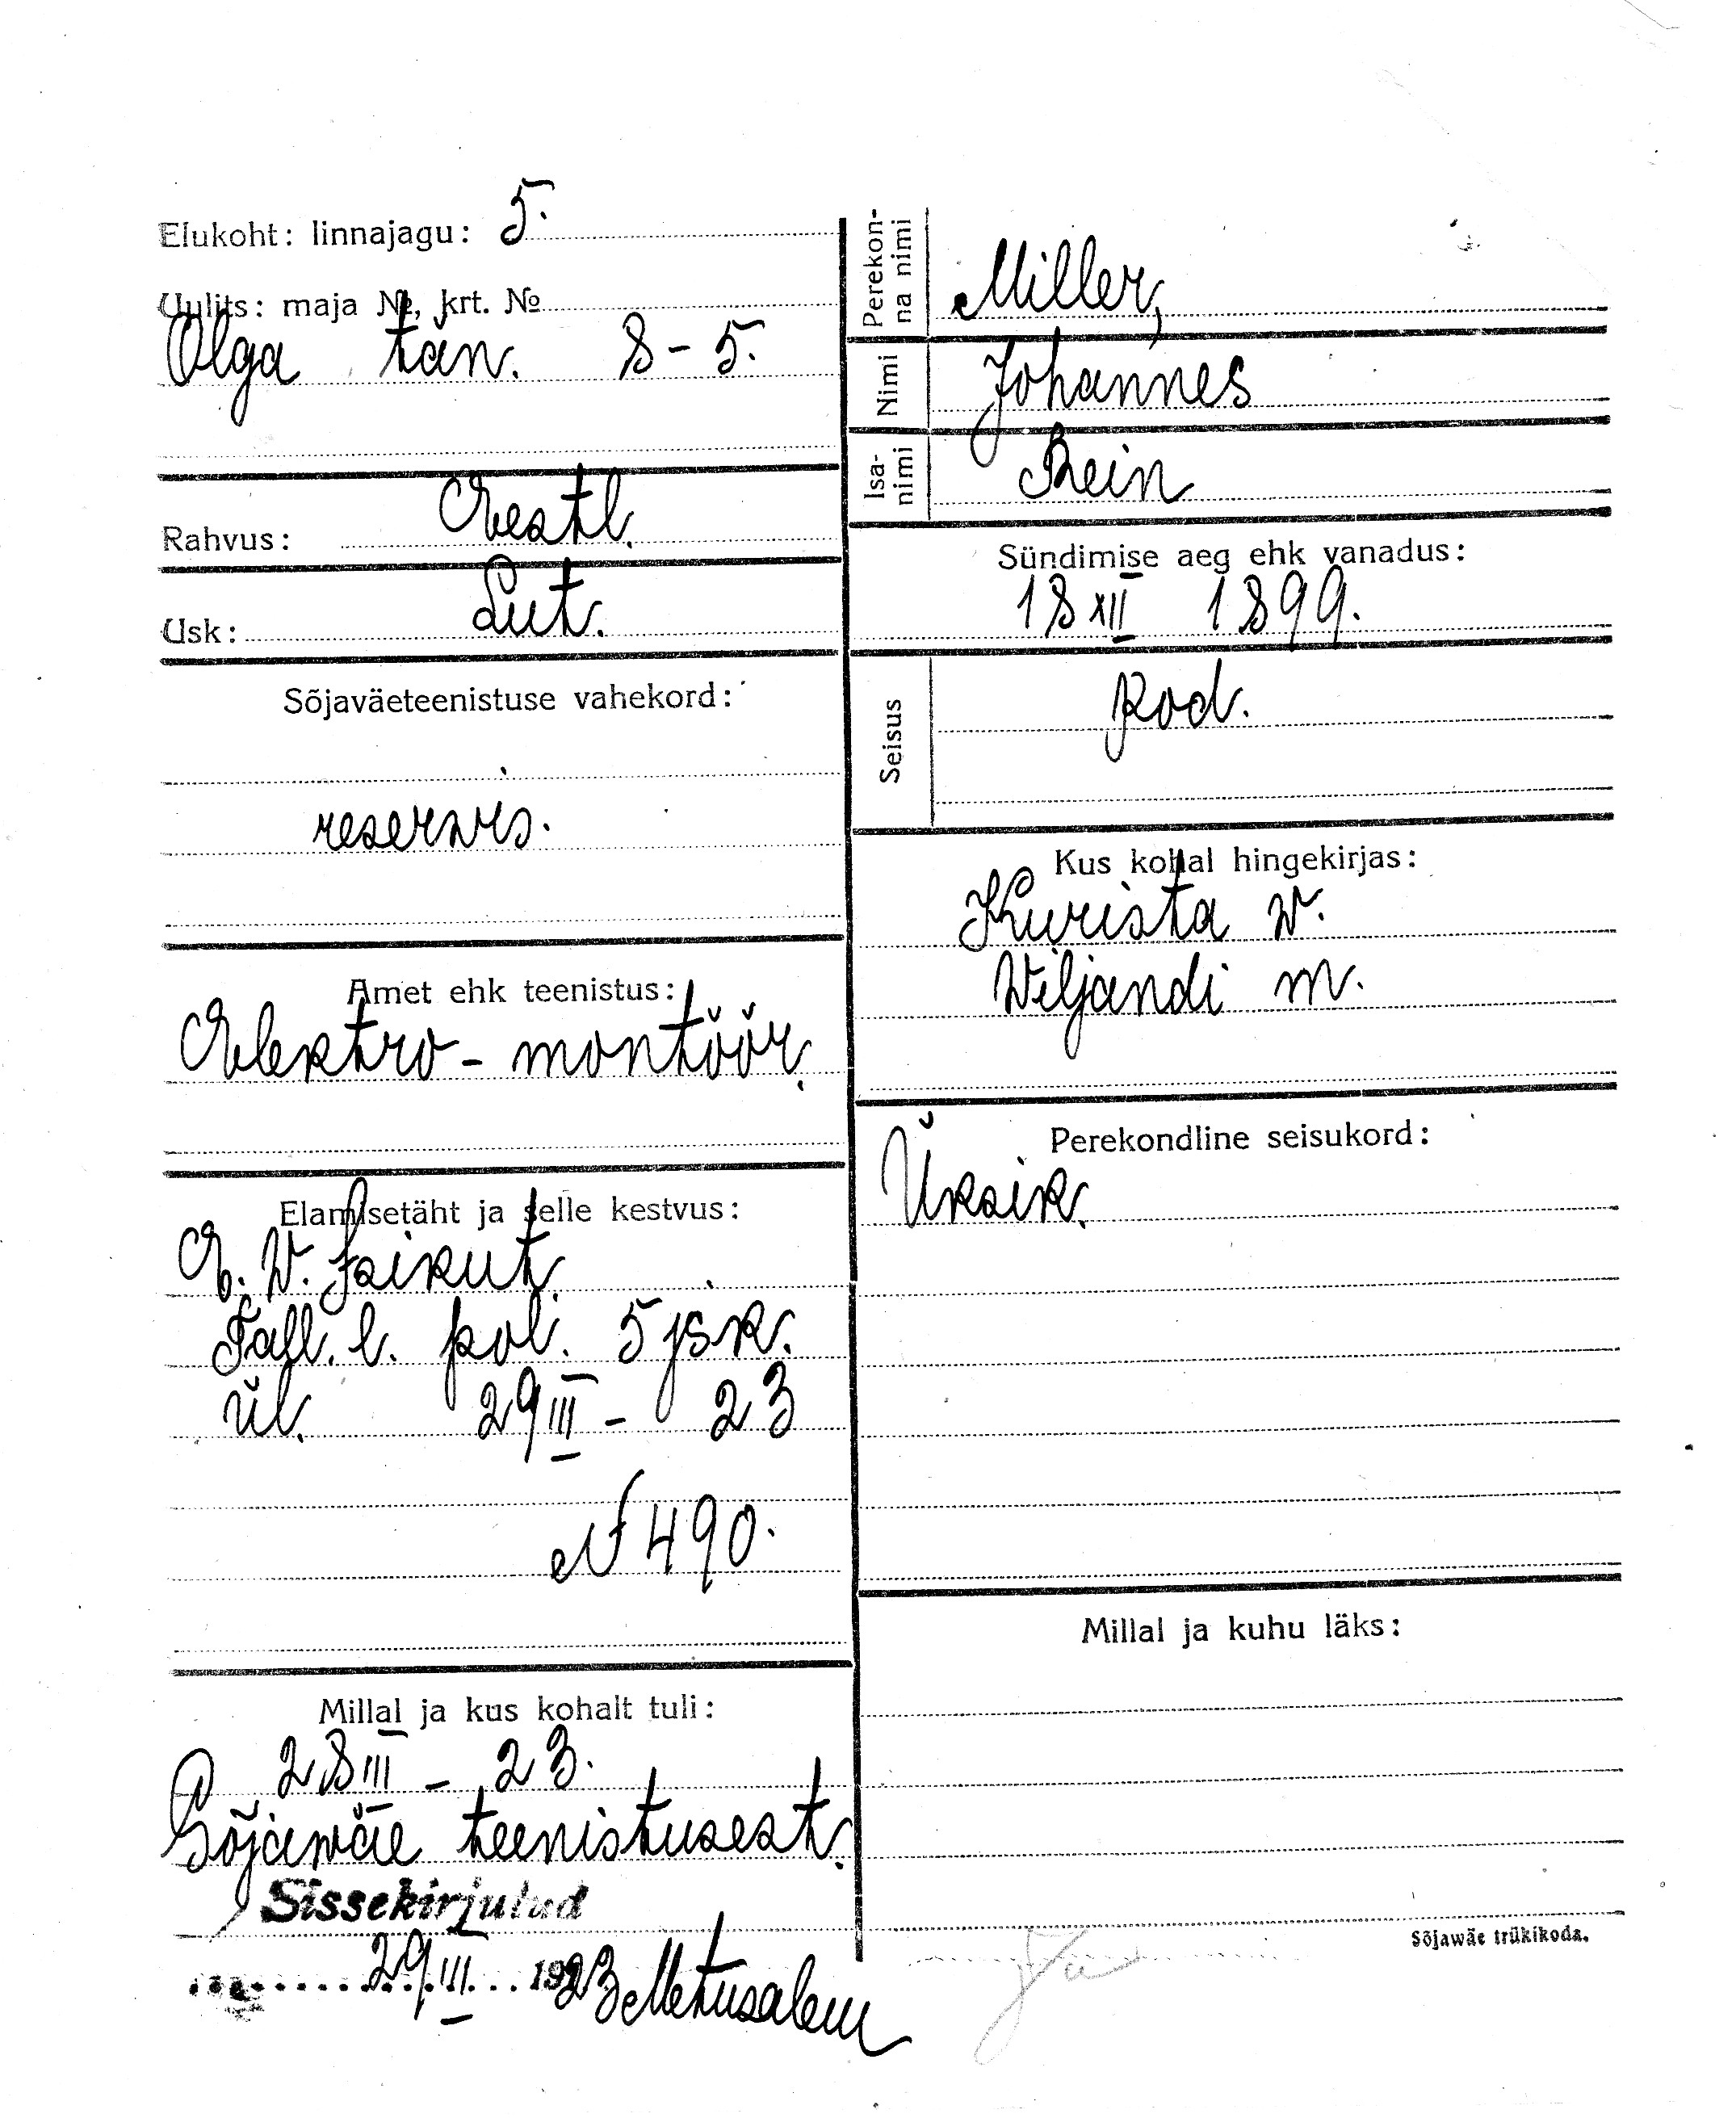 Elukoht: linnajagu: 5.
Uulits: maja №, krt. №
Olga tän. 8-5.
Rahvus: Eestl.
Usk: Lut.
Sõjaväeteenistuse vahekord:
reservis.
Amet ehk teenistus:
Elektro-montöör.
Elamisetäht ja selle kestvus:
E. W. Isikut.
Tall. l. pol. 5 jsk.
ül. 29 III - 23
N 490.
Millal ja kus kohalt tuli:
28 III - 23.
Sõjawäe teenistusest.
Sissekirjutud
29 III 1923 Metusalem
Perekonna nimi
Miller,
Nimi
Johannes
Isanimi
Rein
Sündimise aeg ehk vanadus:
18 XII 1899.
Seisus
kod.
Kus kohal hingekirjas:
Kurista w.
Wiljandi m.
Perekondline seisukord:
Üksik.
Millal ja kuhu läks:
Sõjawäe trükikoda.